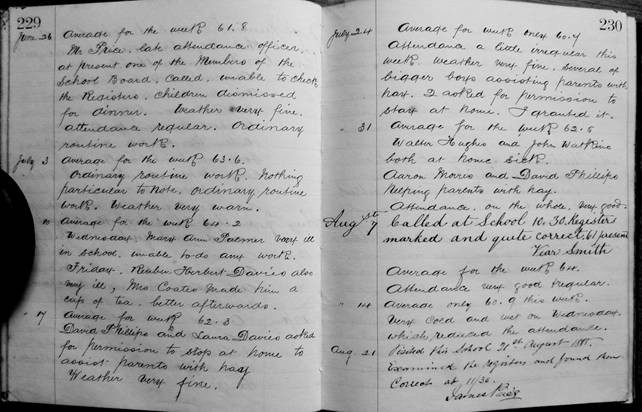 229
June 26 Average for the week 61.8
Mr Price, late attendance officer
at present one of the Members of the
School Board, called, unable to check
the Registers, children dismissed
for dinner. Weather very fine.
attendance regular. Ordinary
routine work.
July 3 Average for the week 63.6.
Ordinary routine work. Nothing
particular to note. ordinary routine
work. Weather very warm.
" 10 Average for the week 64.2
Wednesday Mary Ann Palmer very ill
in school. unable to do any work.
Friday. Reuben Herbert Davies also
very ill, Mrs Coates made him a
cup of tea. better afterwards.
" 17 Average for week 62.3.
David Phillips and Laura Davies asked
for permission to stop at home to
assist parents with hay
Weather very fine.
230
July 24 Average for week only 60.7
Attendance a little irregular this
week. Weather very fine. Several of
bigger boys assisting parents with
hay. I asked for permission to
stay at home. I granted it.
" 31 Average for the week 62.8
Walter Hughes and John Watkins
both at home sick.
Aaron Morris and David Phillips
helping parents with hay.
Attendance, on the whole, very good.
Aug st 7 Called at School 10.30. Registers
marked and quite correct. 61 present
Vicar Smith
Average for the week 64.
Attendance very good & regular.
" 14 Average only 60.9 this week.
Very cold and wet on Wednesday.
which reduced the attendance.
Aug. 21 Visited this School 21st August
Examined the registers and found them
Correct at 11/30.
James Price